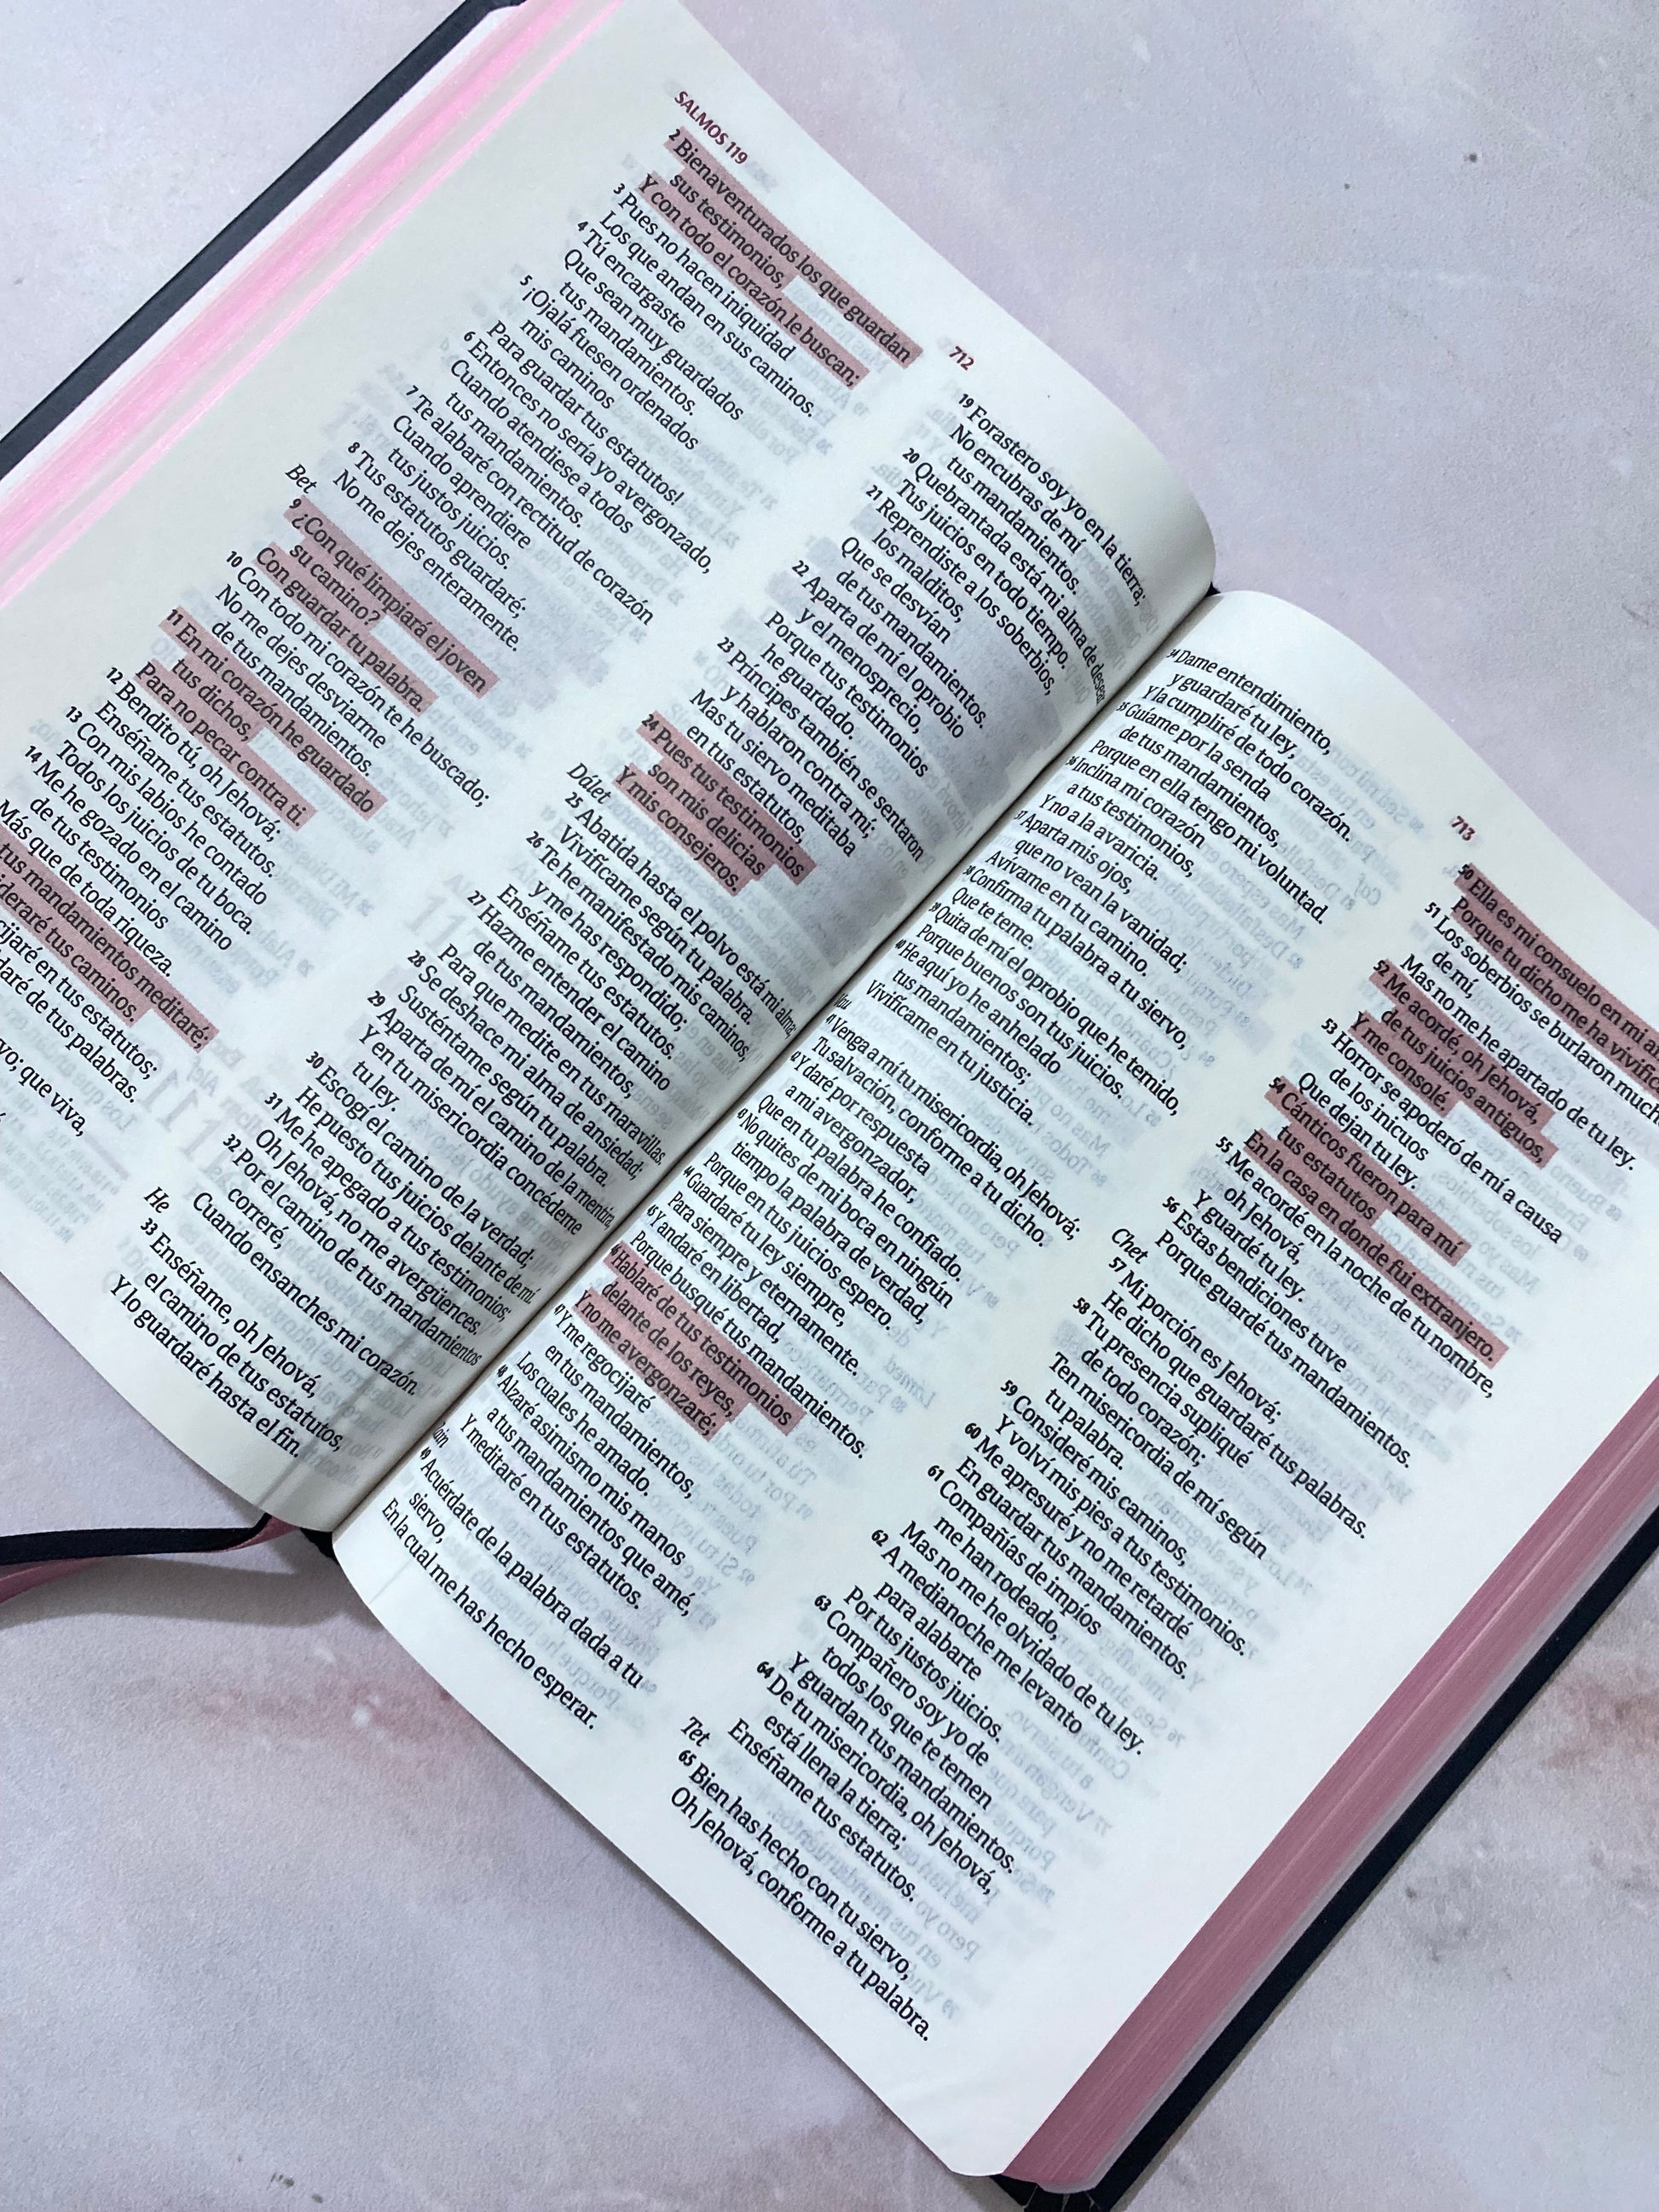 SALMOS 119
712
2 Bienaventurados los que guardan
sus testimonios,
Y con todo el corazón le buscan;
3 Pues no hacen iniquidad
Los que andan en sus caminos.
4 Tú encargaste
Que sean muy guardados
tus mandamientos.
5 ¡Ojalá fuesen ordenados
mis caminos
Para guardar tus estatutos!
6 Entonces no sería yo avergonzado,
Cuando atendiese a todos
tus mandamientos.
7 Te alabaré con rectitud de corazón
Cuando aprendiere
tus justos juicios.
8 Tus estatutos guardaré;
No me dejes enteramente.
Bet
9 ¿Con qué limpiará el joven
su camino?
Con guardar tu palabra.
10 Con todo mi corazón te he buscado;
No me dejes desviarme
de tus mandamientos.
11 En mi corazón he guardado
tus dichos,
Para no pecar contra ti
12 Bendito tú, oh Jehová;
Enséñame tus estatutos.
13 Con mis labios he contado
Todos los juicios de tu boca.
14 Me he gozado en el camino
de tus testimonios
Más que de toda riqueza.
tus mandamientos meditaré;
tus caminos.
en tus estatutos;
de tus palabras.
que viva,
19 Forastero soy yo en la tierra;
No encubras de mí
tus mandamientos.
20 Quebrantada está mi alma de desear
Tus juicios en todo tiempo.
21 Reprendiste a los soberbios,
los malditos,
Que se desvían
de tus mandamientos.
22 Aparta de mí el oprobio
y el menosprecio,
Porque tus testimonios
he guardado.
23 Príncipes también se sentaron
y hablaron contra mí;
Mas tu siervo meditaba
en tus estatutos,
24 Pues tus testimonios
son mis delicias
Y mis consejeros.
Dálet
25 Abatida hasta el polvo está mi alma;
Vivifícame según tu palabra.
26 Te he manifestado mis caminos,
y me has respondido;
Enséñame tus estatutos.
27 Hazme entender el camino
de tus mandamientos,
Para que medite en tus maravillas.
28 Se deshace mi alma de ansiedad;
Susténtame según tu palabra.
29 Aparta de mí el camino de la mentira,
Y en tu misericordia concédeme
tu ley.
30 Escogí el camino de la verdad;
He puesto tus juicios delante de mí
31 Me he apegado a tus testimonios;
Oh Jehová, no me avergüences.
32 Por el camino de tus mandamientos
correré,
Cuando ensanches mi corazón.
He
33 Enséñame, oh Jehová,
el camino de tus estatutos,
Y lo guardaré hasta el fin.
713
34 Dame entendimiento,
y guardaré tu ley,
Y la cumpliré de todo corazón.
35 Guíame por la senda
de tus mandamientos,
Porque en ella tengo mi voluntad.
36 Inclina mi corazón
a tus testimonios,
Y no a la avaricia.
37 Aparta mis ojos,
que no vean la vanidad;
Avívame en tu camino.
38 Confirma tu palabra a tu siervo,
Que te teme.
39 Quita de mí el oprobio que he temido,
Porque buenos son tus juicios.
40 He aquí yo he anhelado
tus mandamientos;
Vivifícame en tu justicia.
41 Venga a mí tu misericordia, oh Jehová;
Tu salvación, conforme a tu dicho.
42 Y daré por respuesta
a mi avergonzador,
Que en tu palabra he confiado.
43 No quites de mi boca en ningún
tiempo la palabra de verdad,
Porque en tus juicios espero.
44 Guardaré tu ley siempre,
Para siempre y eternamente.
45 Y andaré en libertad,
Porque busqué tus mandamientos.
46 Hablaré de tus testimonios
delante de los reyes,
Y no me avergonzaré;
47 Y me regocijaré
en tus mandamientos,
Los cuales he amado.
48 Alzaré asimismo mis manos
a tus mandamientos que amé,
Y meditaré en tus estatutos.
49 Acuérdate de la palabra dada a tu
siervo,
En la cual me has hecho esperar.
50 Ella es mi consuelo en mi
Porque tu dicho me ha
51 Los soberbios se burlaron mucho
de mí,
Mas no me he apartado de tu ley.
52 Me acordé, oh Jehová,
de tus juicios antiguos,
Y me consolé.
53 Horror se apoderó de mí a causa
de los inicuos
Que dejan tu ley.
54 Cánticos fueron para mí
tus estatutos
En la casa en donde fui extranjero.
55 Me acordé en la noche de tu nombre,
oh Jehová,
Y guardé tu ley.
56 Estas bendiciones tuve
Porque guardé tus mandamientos.
Chet
57 Mi porción es Jehová;
He dicho que guardaré tus palabras.
58 Tu presencia supliqué
de todo corazón;
Ten misericordia de mí según
tu palabra.
59 Consideré mis caminos,
Y volví mis pies a tus testimonios.
60 Me apresuré y no me retardé
En guardar tus mandamientos.
61 Compañías de impíos
me han rodeado,
Mas no me he olvidado de tu ley.
62 A medianoche me levanto
para alabarte
Por tus justos juicios.
63 Compañero soy yo de
todos los que te temen
Y guardan tus mandamientos.
64 De tu misericordia, oh Jehová,
está llena la tierra;
Enséñame tus estatutos.
Tet
65 Bien has hecho con tu siervo,
Oh Jehová, conforme a tu palabra.